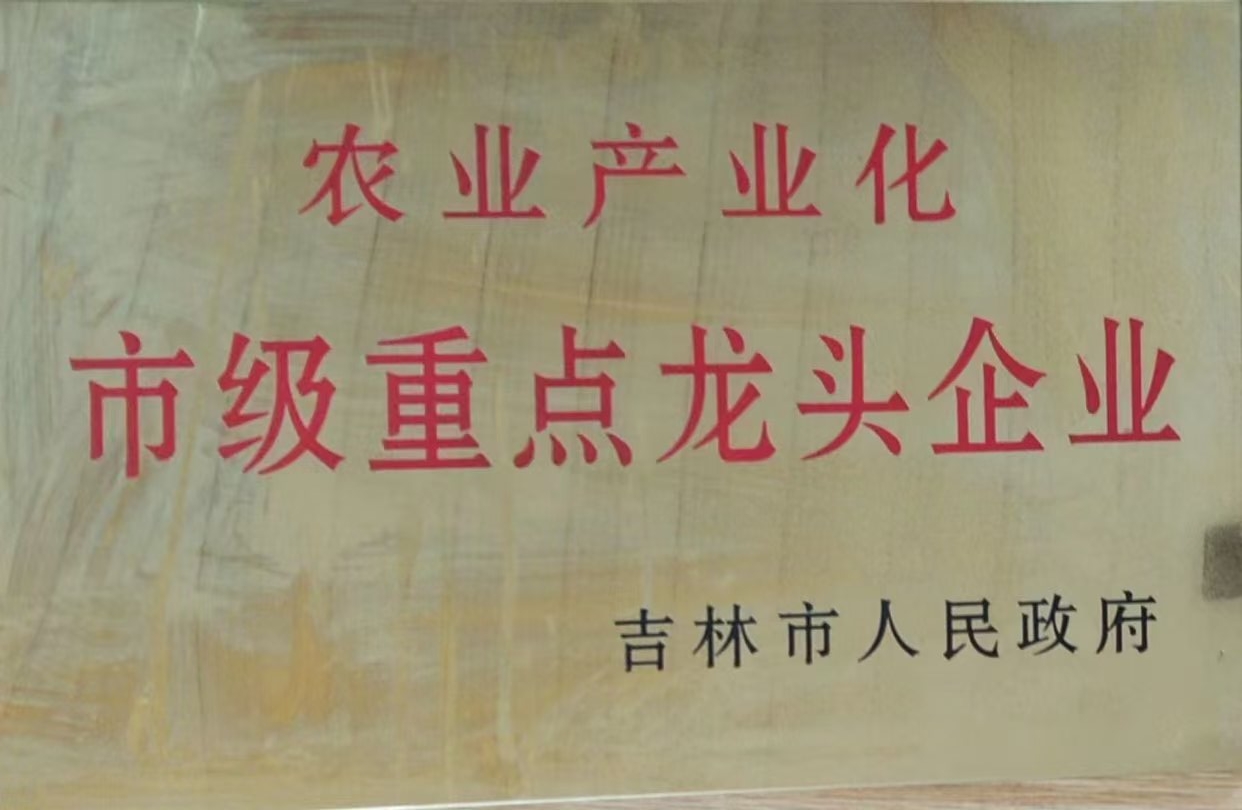 农业产业化
市级重点龙头企业
吉林市人民政府